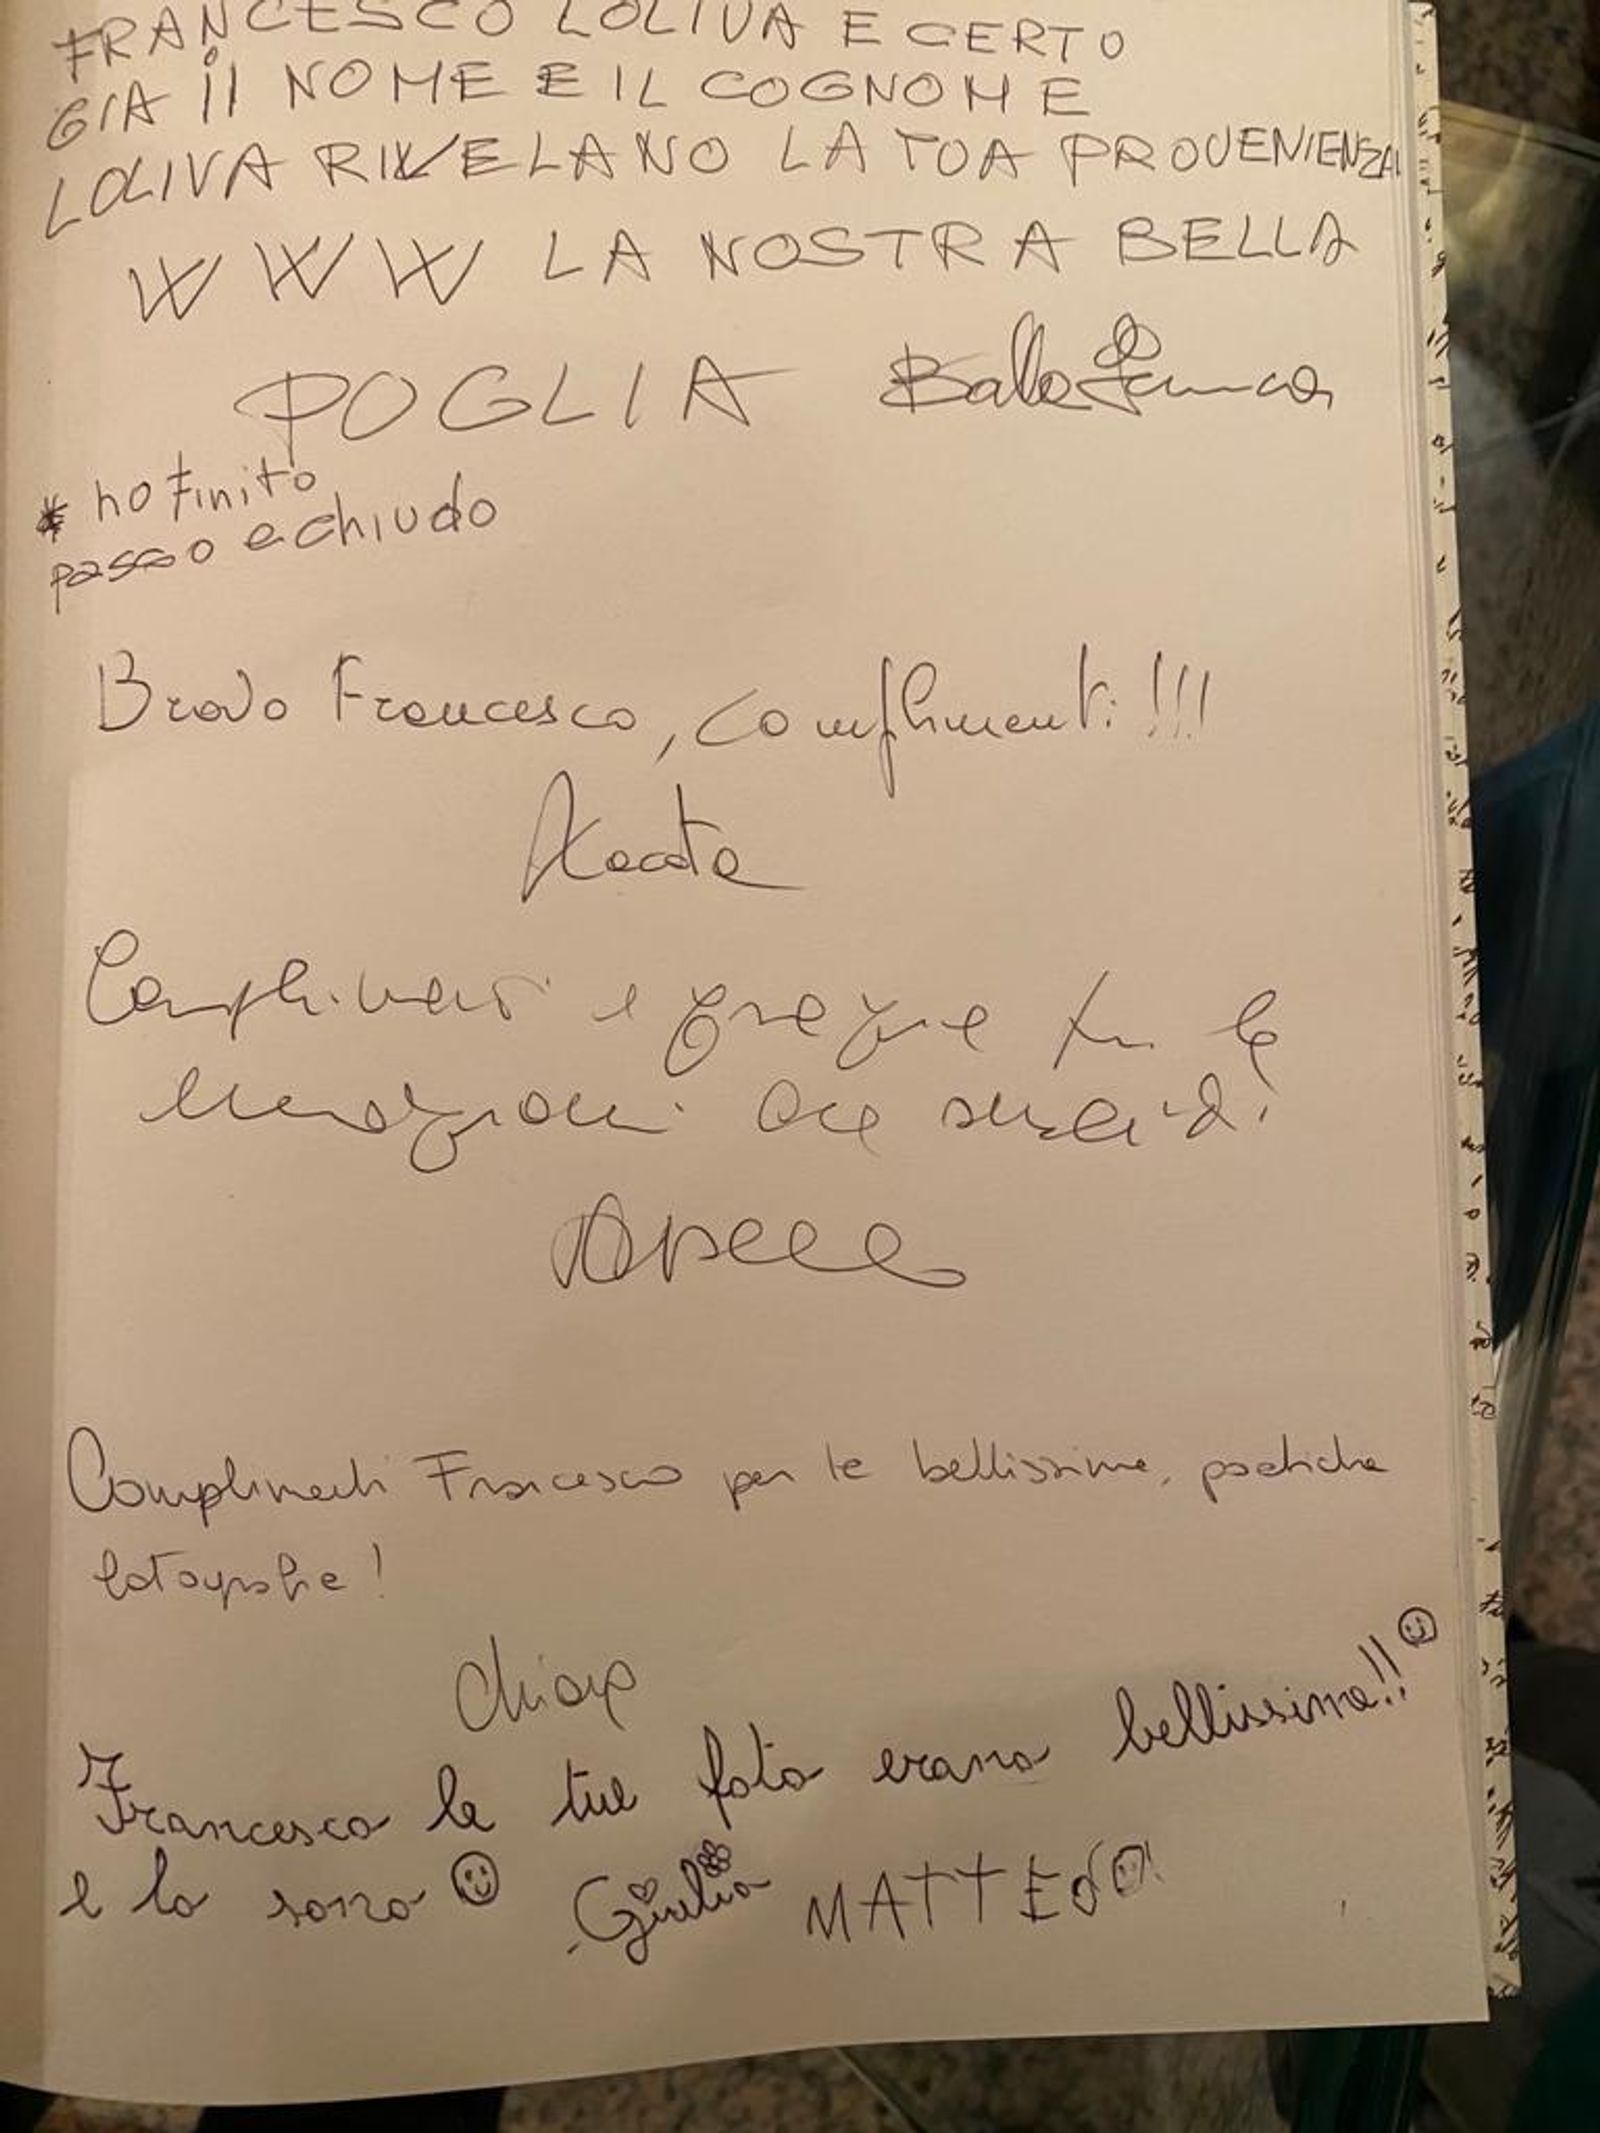 FRANCESCO LOLIVA E CERTO
GIA il NOME E IL COGNOME
LOLIVA RIVELANO LA TUA PROVENIENZA
W W W LA NOSTRA BELLA
POGLIA Balla Franca
* ho finito
passo e chiudo
Bravo Francesco, complimenti!!!
Complimenti e grazie per le
emozioni che susciti
Complimenti Francesco per le bellissime, poetiche
fotografie!
Chiara
Francesco le tue foto erano bellissime!!
e lo sono Giulia MATTEO